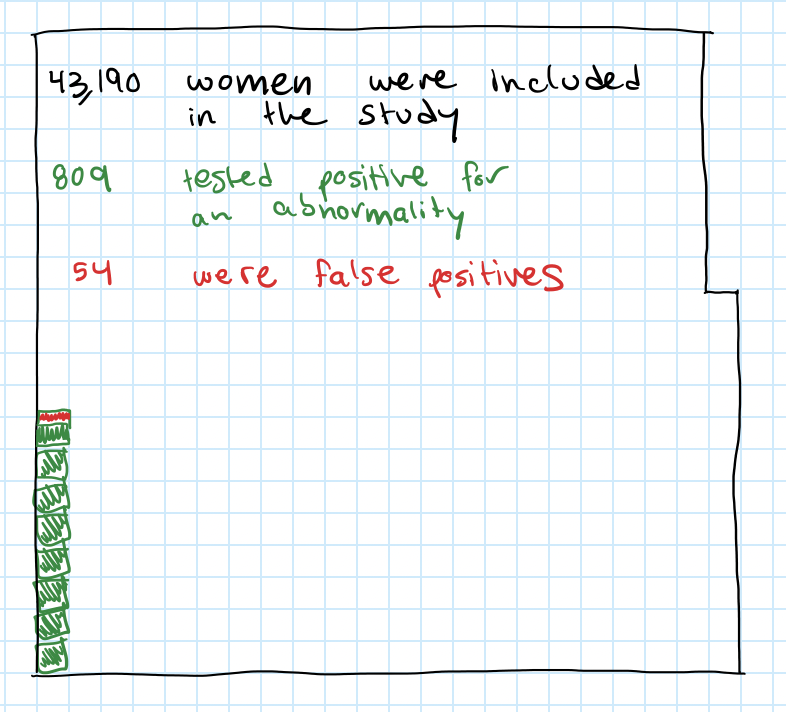 43,190 women were included
in the study
809 tested positive for
an abnormality
54 were false positives